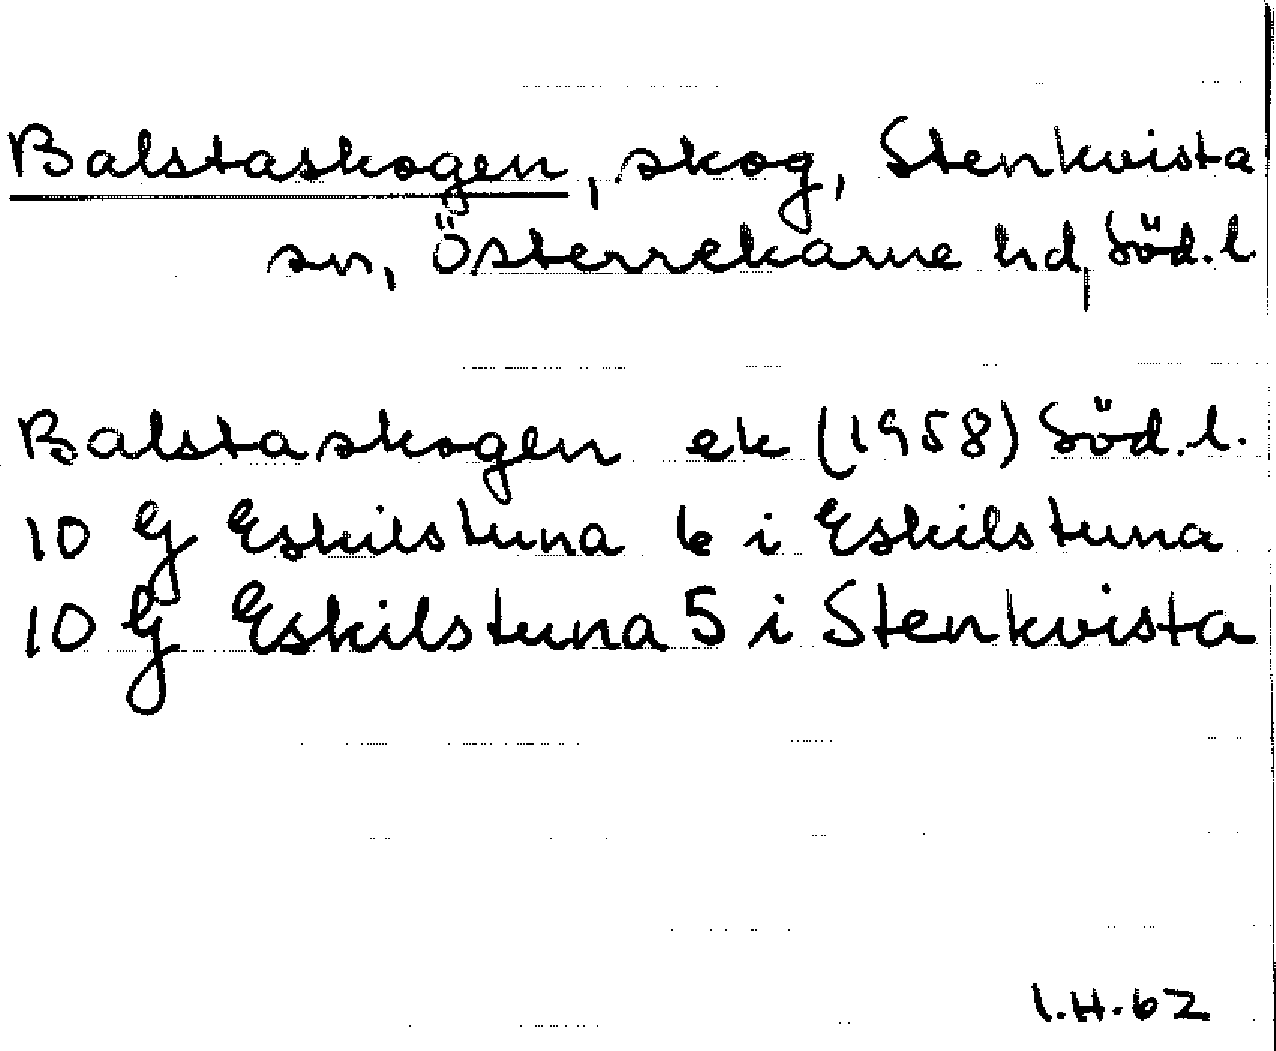 Balstaskogen, skog, Stenkvista
sn, Österrekarne hd, Söd.l.
Balstaskogen ek (1958) Söd.l.
10 G Eskilstuna 6 i Eskilstuna
10 G Eskilstuna 5 i Stenkvista
I.H.62